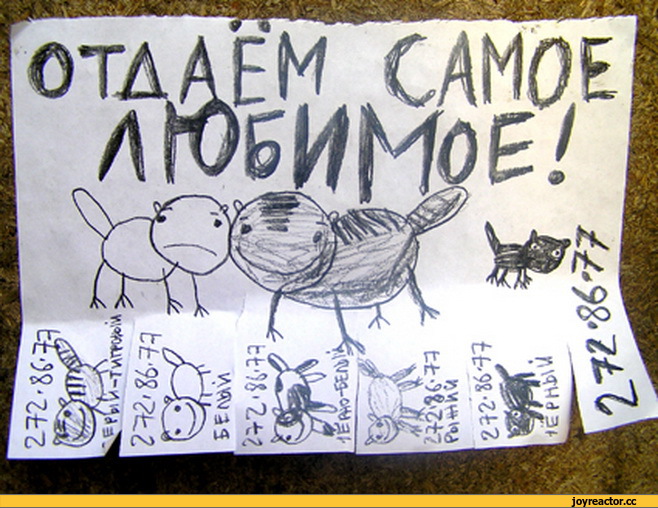 ОТДАЁМ САМОЕ
ЛЮБИМОЕ!
272.86.77
ЕРЫЙ-ТИГРОВЫЙ
272.86.77
БЕЛЫЙ
272.86.77
ЧЕРНО-БЕЛЫЙ
272.86.77
РЫЖИЙ
272.86.77
ЧЁРНЫЙ
272.86.77
joyreactor.cc